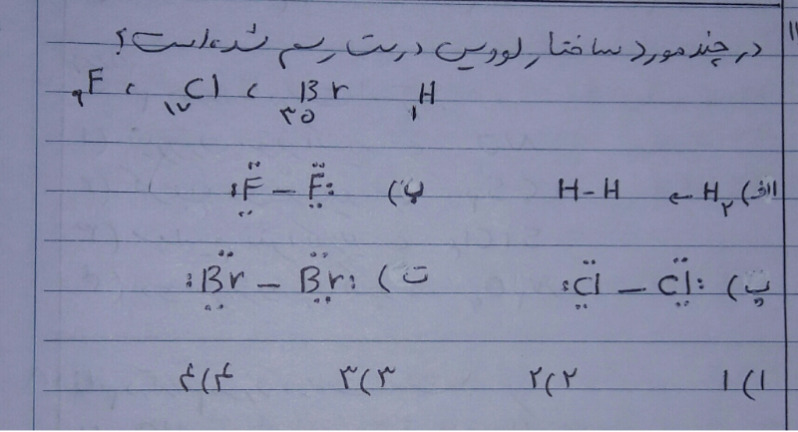 در چند مورد ساختار لوویس درست رسم شده است؟
₉F ، ₁₇Cl ، ₃₅Br ₁H
الف) H₂ ← H-H ب) :F̈ - F̈:
پ) :C̈l - C̈l: ت) :B̈r - B̈r:
۱) ۱ ۲) ۲ ۳) ۳ ۴) ۴